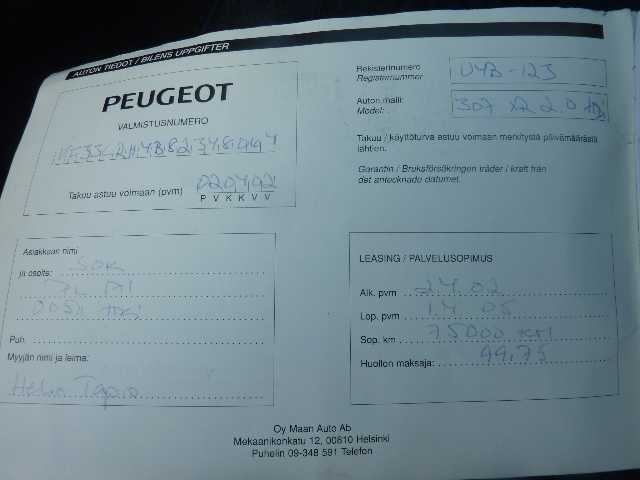 AUTON TIEDOT / BILENS UPPGIFTER
PEUGEOT
VALMISTUSNUMERO
Takuu astuu voimaan (pvm) 020402
P V K K V V
Rekisterinumero
Registernummer
UYB-123
Auton malli:
Model:
307 2.0
Takuu / käyttöturva astuu voimaan merkitystä päivämäärästä
lähtien.
Garantin / Bruksförsäkringen träder i kraft från
det antecknade datumet.
Asiakkaan nimi
ja osoite: SOK
Puh.
Myyjän nimi ja leima:
Tapio
LEASING / PALVELUSOPIMUS
Alk. pvm 2.4.02
Lop. pvm 1.4.05
Sop. km 75000 km
Huollon maksaja: 99,75
Oy Maan Auto Ab
Mekaanikonkatu 12, 00810 Helsinki
Puhelin 09-348 591 Telefon